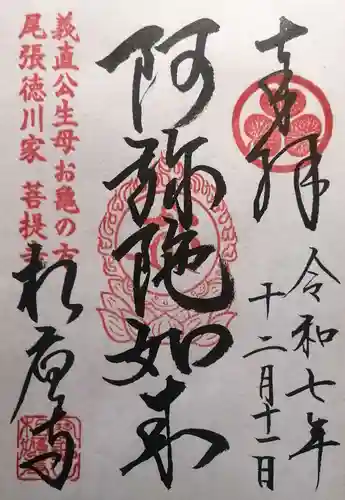 奉拝
令和七年
十二月十一日
阿弥陀如来
義直公生母お亀の方
尾張徳川家 菩提寺
相応寺